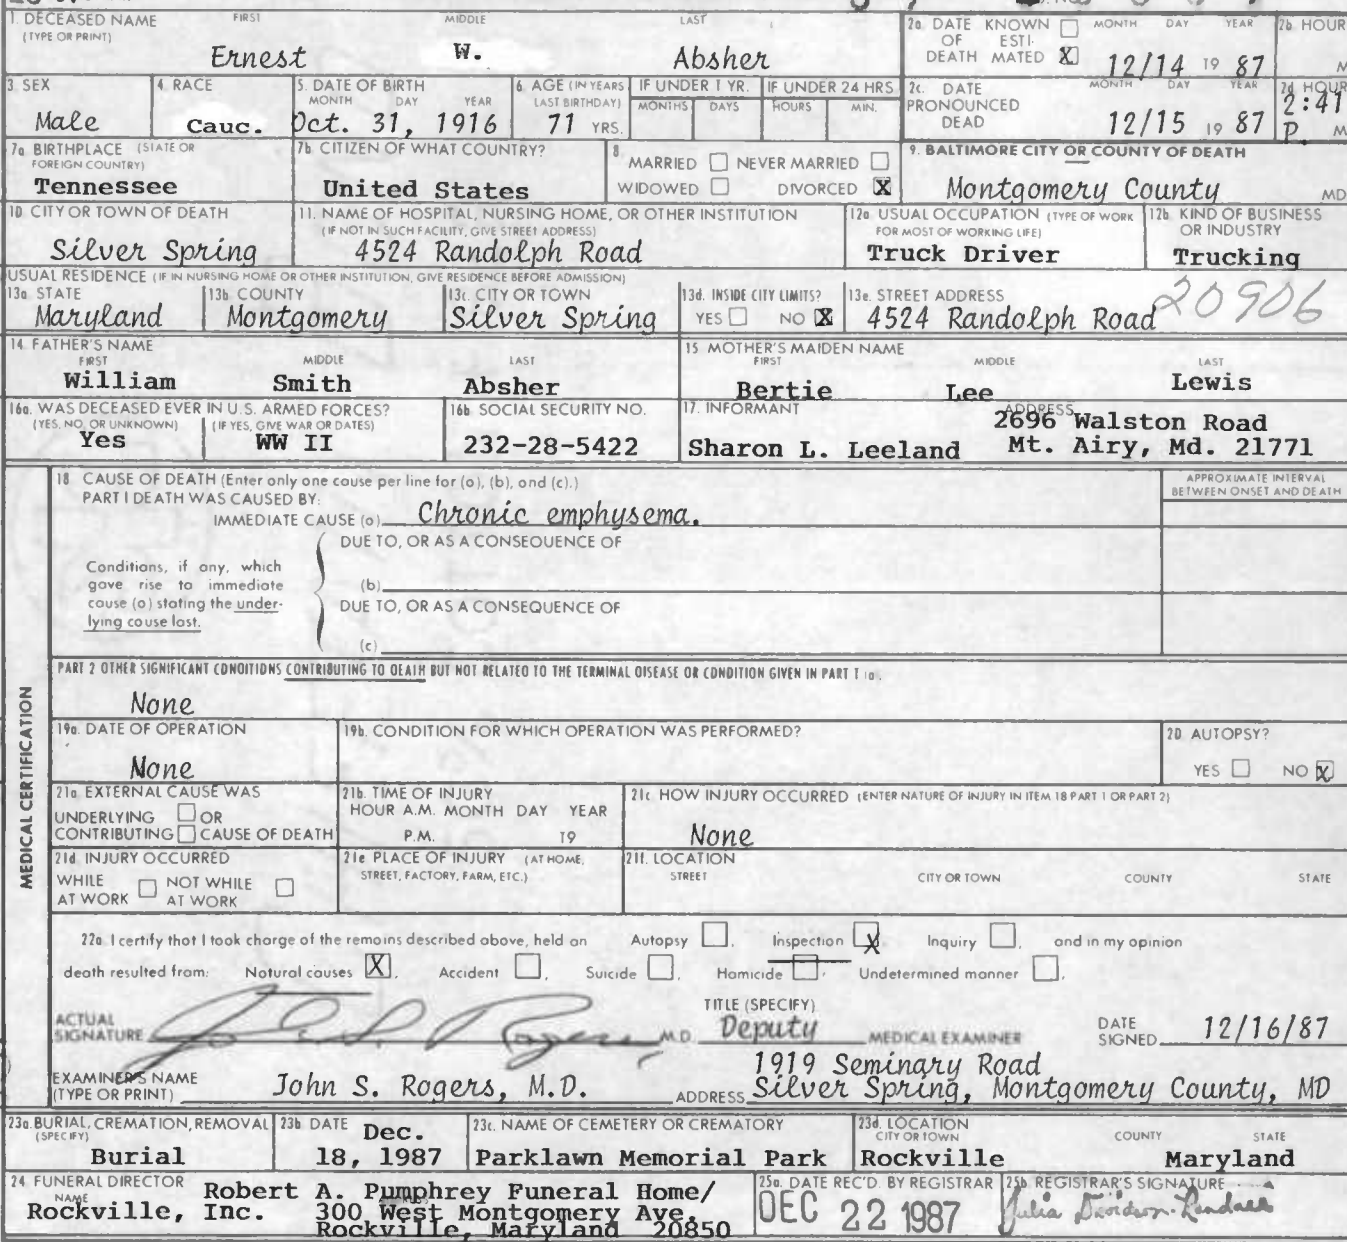 1. DECEASED NAME (TYPE OR PRINT) FIRST MIDDLE LAST
Ernest W. Absher
2a. DATE OF DEATH KNOWN ☐ ESTIMATED ☒ MONTH DAY YEAR
12/14 19 87
2b. HOUR M
3. SEX
Male
4. RACE
Cauc.
5. DATE OF BIRTH MONTH DAY YEAR
Oct. 31, 1916
6. AGE (IN YEARS LAST BIRTHDAY)
71 YRS.
IF UNDER 1 YR. MONTHS DAYS
IF UNDER 24 HRS HOURS MIN.
2c. DATE PRONOUNCED DEAD MONTH DAY YEAR
12/15 19 87
2d. HOUR
2:41 P. M
7a. BIRTHPLACE (STATE OR FOREIGN COUNTRY)
Tennessee
7b. CITIZEN OF WHAT COUNTRY?
United States
8. MARRIED ☐ NEVER MARRIED ☐
WIDOWED ☐ DIVORCED ☒
9. BALTIMORE CITY OR COUNTY OF DEATH
Montgomery County MD
10. CITY OR TOWN OF DEATH
Silver Spring
11. NAME OF HOSPITAL, NURSING HOME, OR OTHER INSTITUTION
(IF NOT IN SUCH FACILITY, GIVE STREET ADDRESS)
4524 Randolph Road
12a. USUAL OCCUPATION (TYPE OF WORK FOR MOST OF WORKING LIFE)
Truck Driver
12b. KIND OF BUSINESS OR INDUSTRY
Trucking
USUAL RESIDENCE (IF IN NURSING HOME OR OTHER INSTITUTION, GIVE RESIDENCE BEFORE ADMISSION)
13a. STATE
Maryland
13b. COUNTY
Montgomery
13c. CITY OR TOWN
Silver Spring
13d. INSIDE CITY LIMITS?
YES ☐ NO ☒
13e. STREET ADDRESS
4524 Randolph Road 20906
14. FATHER'S NAME FIRST MIDDLE LAST
William Smith Absher
15. MOTHER'S MAIDEN NAME FIRST MIDDLE LAST
Bertie Lee Lewis
16a. WAS DECEASED EVER IN U.S. ARMED FORCES?
(YES, NO, OR UNKNOWN) (IF YES, GIVE WAR OR DATES)
Yes WW II
16b. SOCIAL SECURITY NO.
232-28-5422
17. INFORMANT ADDRESS
Sharon L. Leeland
2696 Walston Road
Mt. Airy, Md. 21771
MEDICAL CERTIFICATION
18. CAUSE OF DEATH (Enter only one cause per line for (a), (b), and (c).)
PART I DEATH WAS CAUSED BY:
IMMEDIATE CAUSE (a) Chronic emphysema.
APPROXIMATE INTERVAL BETWEEN ONSET AND DEATH
DUE TO, OR AS A CONSEQUENCE OF
Conditions, if any, which
gave rise to immediate
cause (a) stating the under-
lying cause last.
(b)
DUE TO, OR AS A CONSEQUENCE OF
(c)
PART 2 OTHER SIGNIFICANT CONDITIONS CONTRIBUTING TO DEATH BUT NOT RELATED TO THE TERMINAL DISEASE OR CONDITION GIVEN IN PART 1 (a).
None
19a. DATE OF OPERATION
None
19b. CONDITION FOR WHICH OPERATION WAS PERFORMED?
20. AUTOPSY?
YES ☐ NO ☒
21a. EXTERNAL CAUSE WAS
UNDERLYING ☐ OR
CONTRIBUTING ☐ CAUSE OF DEATH
21b. TIME OF INJURY
HOUR A.M. MONTH DAY YEAR
P.M. 19
21c. HOW INJURY OCCURRED (ENTER NATURE OF INJURY IN ITEM 18 PART 1 OR PART 2)
None
21d. INJURY OCCURRED
WHILE AT WORK ☐ NOT WHILE AT WORK ☐
21e. PLACE OF INJURY (AT HOME, STREET, FACTORY, FARM, ETC.)
21f. LOCATION
STREET CITY OR TOWN COUNTY STATE
22a. I certify that I took charge of the remains described above, held an Autopsy ☐, Inspection ☒, Inquiry ☐, and in my opinion
death resulted from: Natural causes ☒, Accident ☐, Suicide ☐, Homicide ☐, Undetermined manner ☐,
ACTUAL SIGNATURE John S. Rogers M.D.
TITLE (SPECIFY)
Deputy MEDICAL EXAMINER
DATE SIGNED 12/16/87
EXAMINER'S NAME (TYPE OR PRINT) John S. Rogers, M.D.
ADDRESS 1919 Seminary Road
Silver Spring, Montgomery County, MD
23a. BURIAL, CREMATION, REMOVAL (SPECIFY)
Burial
23b. DATE
Dec. 18, 1987
23c. NAME OF CEMETERY OR CREMATORY
Parklawn Memorial Park
23d. LOCATION CITY OR TOWN COUNTY STATE
Rockville Maryland
24. FUNERAL DIRECTOR NAME
Robert A. Pumphrey Funeral Home/
Rockville, Inc. 300 West Montgomery Ave.
Rockville, Maryland 20850
25a. DATE REC'D. BY REGISTRAR
DEC 22 1987
25b. REGISTRAR'S SIGNATURE
Julia Davidson-Randall